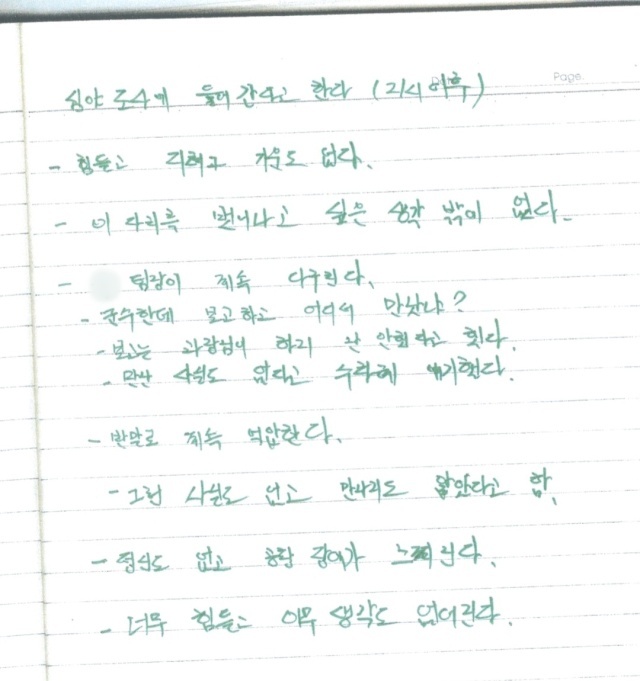 Page.
심야 조사에 들어간다고 한다 (21시 이후)
- 힘들고 지쳐고 기운도 없다.
- 이 자리를 벗어나고 싶은 생각 밖에 없다.
- 팀장이 계속 다구친다.
- 군수한테 보고하고 어디서 만났냐?
- 보고는 과장님이 하지 난 안했다고 했다.
- 만난 사실도 없다고 수차례 얘기했다.
- 반말로 계속 억압한다.
- 그런 사실도 없고 만나지도 않았다고 함.
- 정신도 없고 공황 장애가 느껴진다.
- 너무 힘들고 아무 생각도 없어진다.